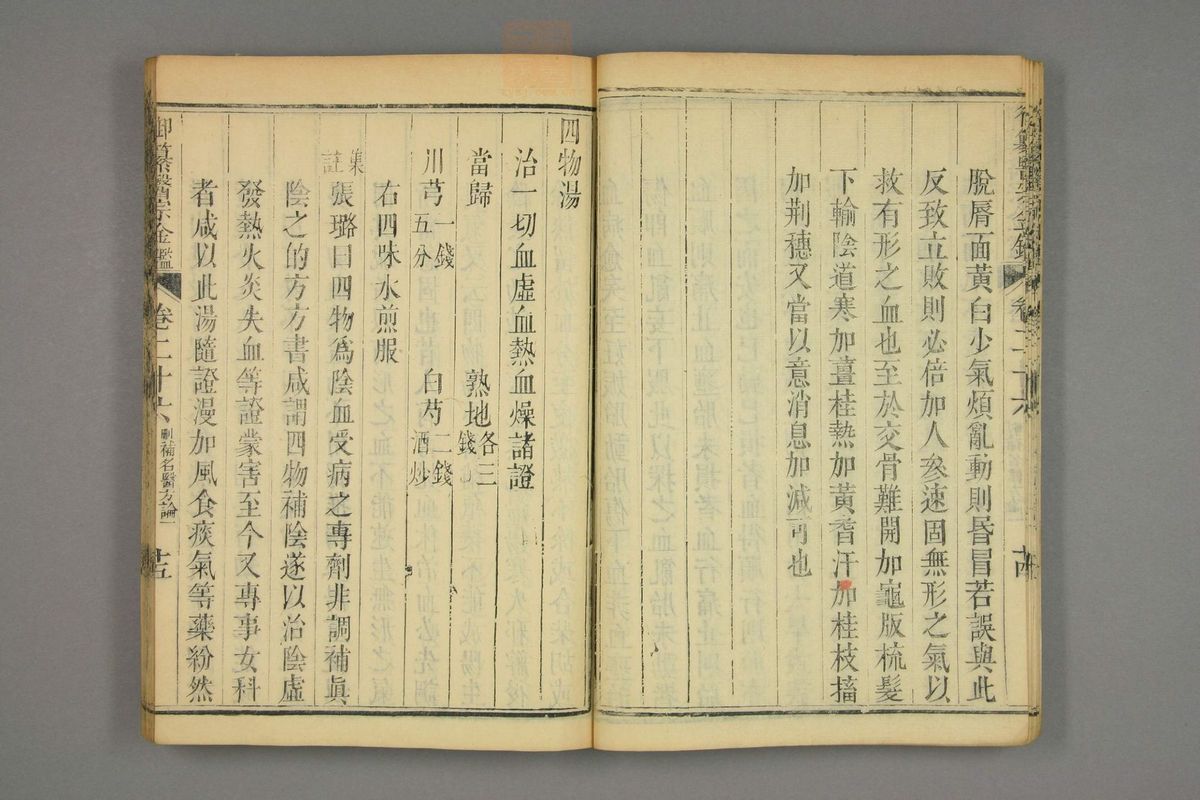 脫脣面黃白少氣煩亂動則昏冒若誤與此
反致立敗則必倍加人參速固無形之氣以
救有形之血也至於交骨難開加龜版梳髮
下輸陰道寒加薑桂熱加黃芩汗加桂枝搐
加荆穗又當以意消息加減可也
四物湯
治一切血虛血熱血燥諸證
當歸 熟地各三錢
川芎一錢五分 白芍二錢酒炒
右四味水煎服
集註張璐曰四物爲陰血受病之專劑非調補眞
陰之的方方書咸謂四物補陰遂以治陰虛
發熱火炎失血等證蒙害至今又專事女科
者咸以此湯隨證漫加風食痰氣等藥紛然
御纂醫宗金鑑 卷二十六 刪補名醫方論一 廿五